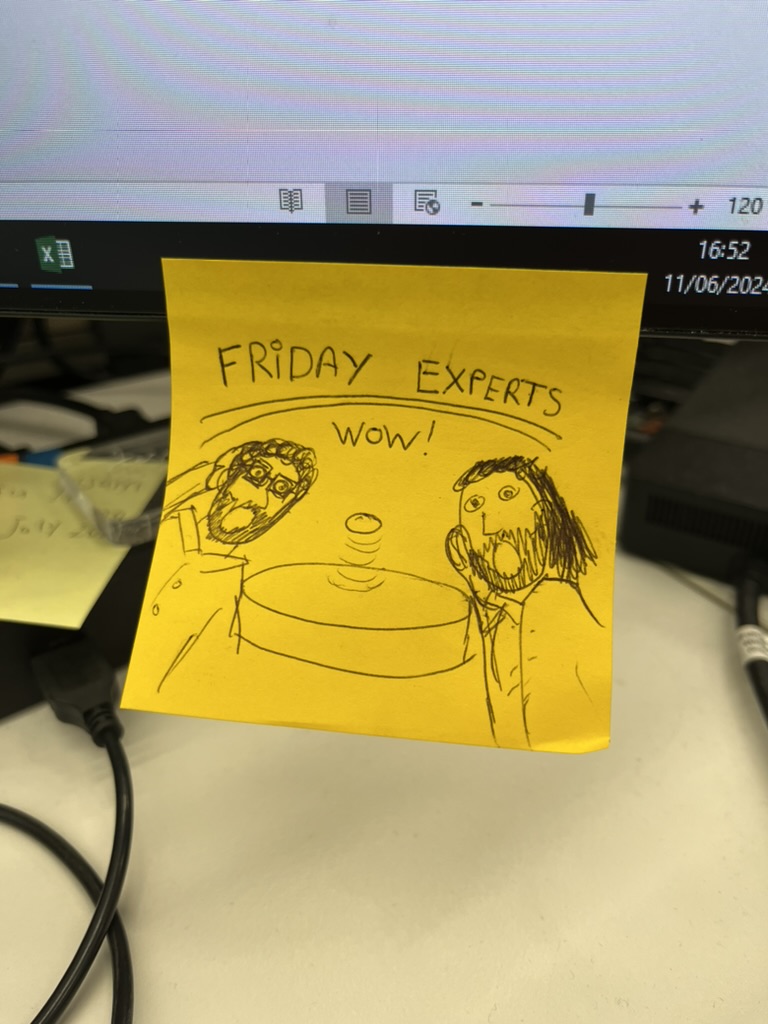 120
16:52
11/06/2024
FRiDAY EXPERTS
WOW!
July